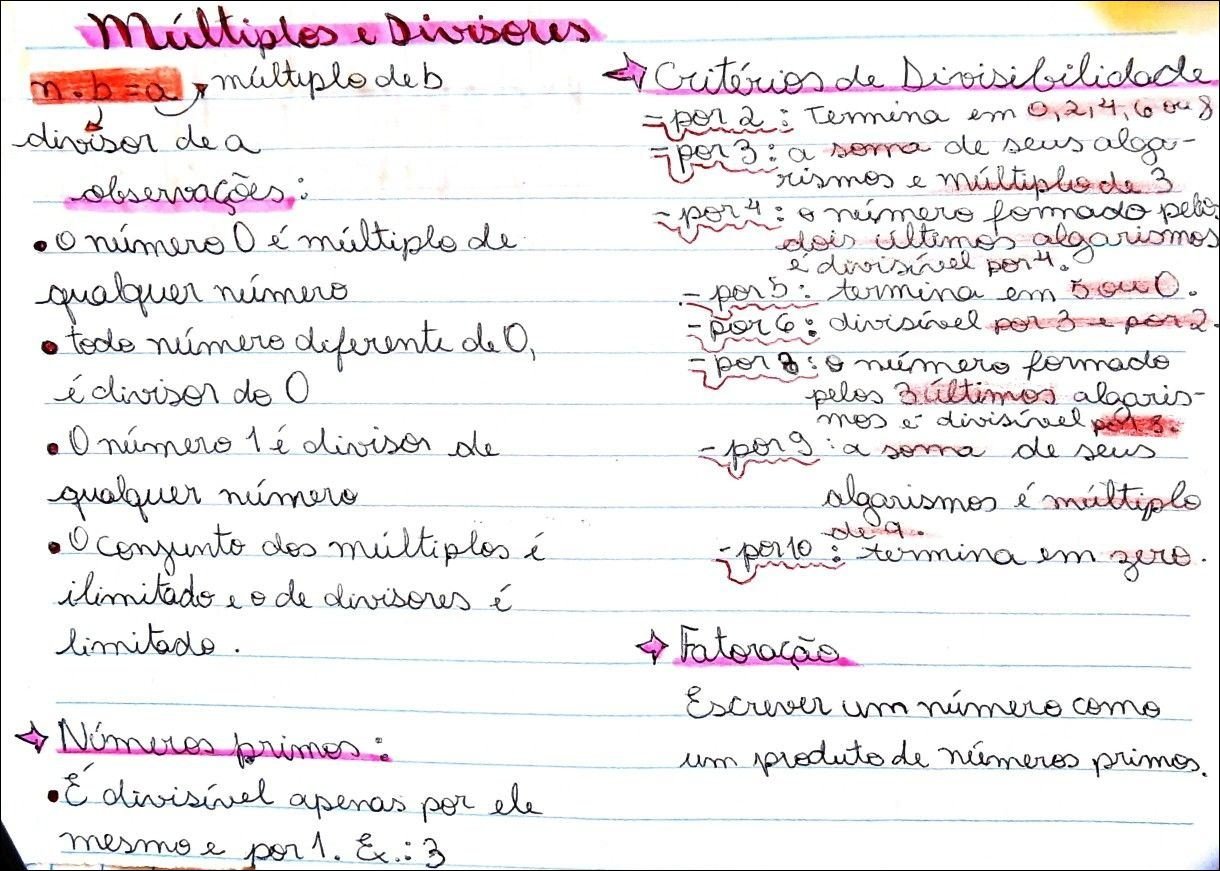 Múltiplos e Divisores
n . b = a múltiplo de b
divisor de a
observações:
• O número 0 é múltiplo de
qualquer número
• todo número diferente de 0,
é divisor do 0
• O número 1 é divisor de
qualquer número
• O conjunto dos múltiplos é
ilimitado e o de divisores é
limitado.
Números primos:
• É divisível apenas por ele
mesmo e por 1. Ex.: 3
Critérios de Divisibilidade
- por 2: Termina em 0, 2, 4, 6 ou 8
- por 3: a soma de seus alga-
rismos e múltiplo de 3
- por 4: o número formado pelos
dois últimos algarismos
é divisível por 4.
- por 5: termina em 5 ou 0.
- por 6: divisível por 3 e por 2.
- por 8: o número formado
pelos 3 últimos algaris-
mos é divisível por 8.
- por 9: a soma de seus
algarismos é múltiplo
de 9.
- por 10: termina em zero.
Fatoração
Escrever um número como
um produto de números primos.